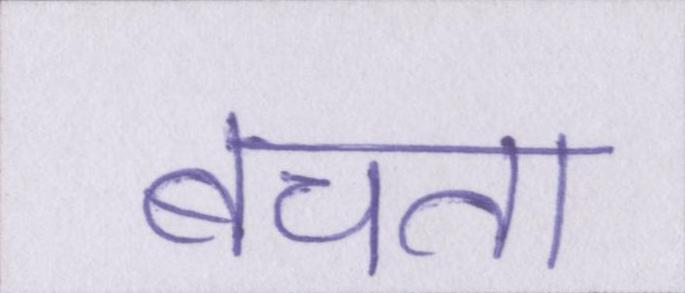 बचता